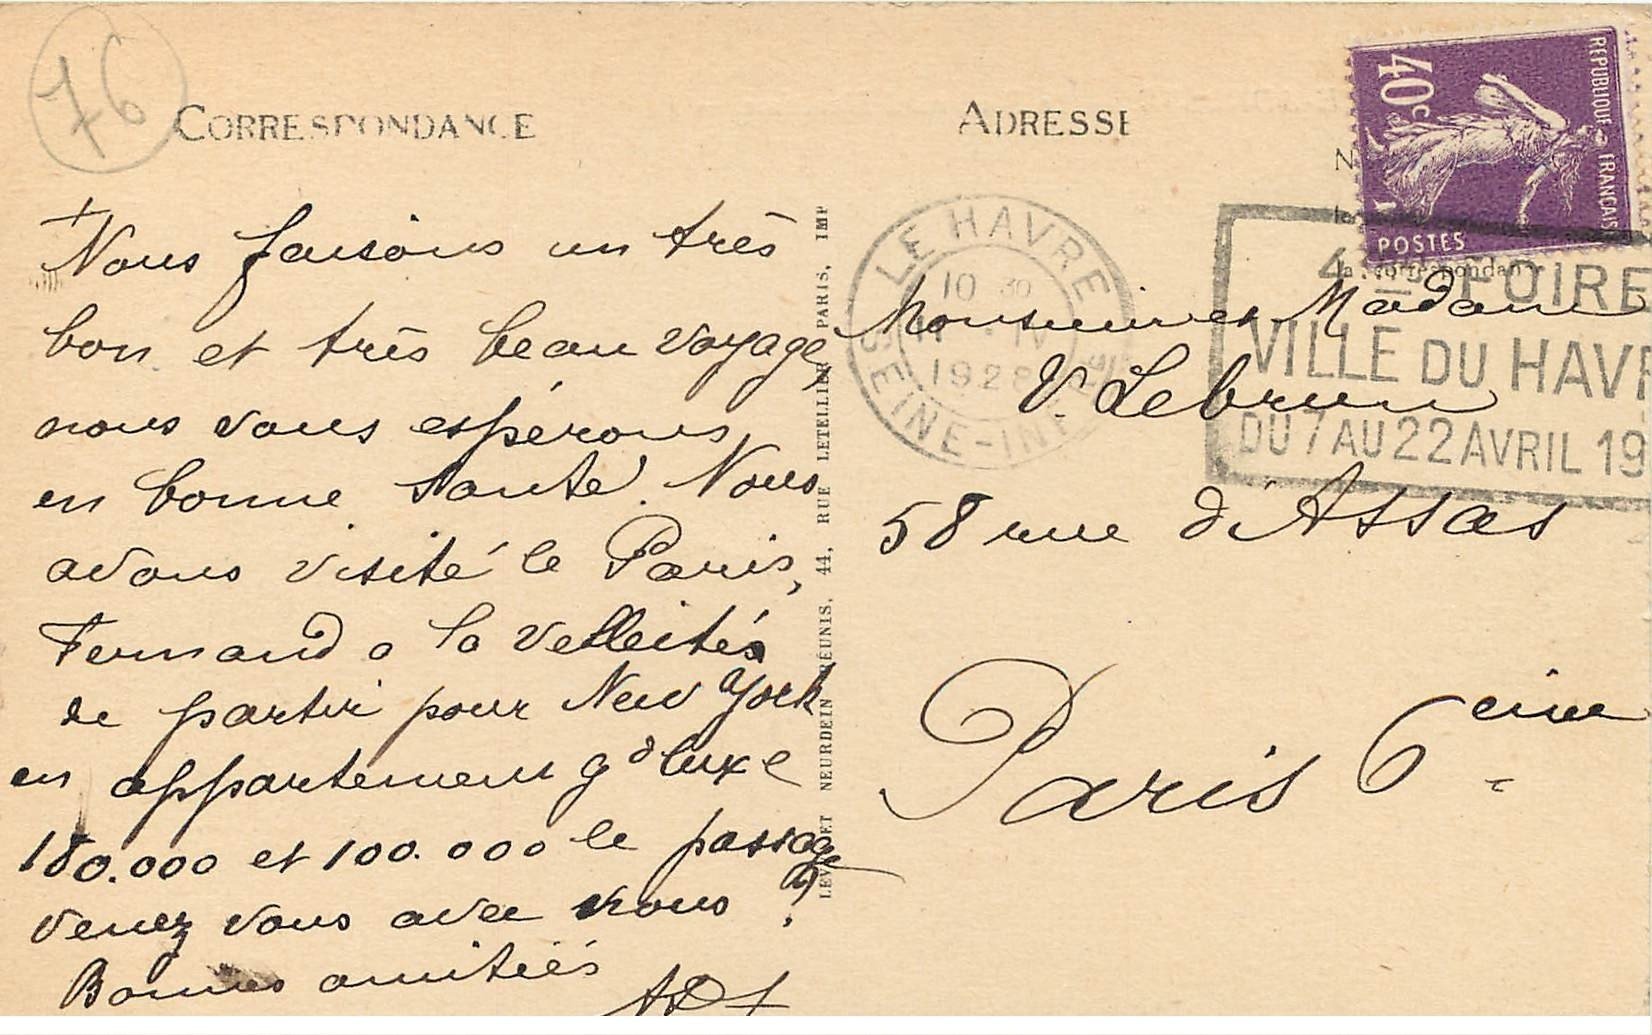 76
CORRESPONDANCE
Nous faisons un très
bon et très beau voyage
nous vous espérons
en bonne santé. Nous
avons visité le Paris,
Fernand a la velleités
de partir pour New York
en appartement gd luxe
180.000 et 100.000 le passage
venez vous avec nous ?
Bonnes amitiés
LEVY ET NEURDEIN RÉUNIS, 44, RUE LETELLIER, PARIS, IMP
ADRESSE
REPUBLIQUE FRANÇAISE
40c
POSTES
la correspondan
LE HAVRE
10 30
IV
1928
SEINE-INF
FOIRE
VILLE DU HAVR
DU 7 AU 22 AVRIL 19
Monsieur et Madame
V. Lebrun
58 rue d'Assas
Paris 6eime